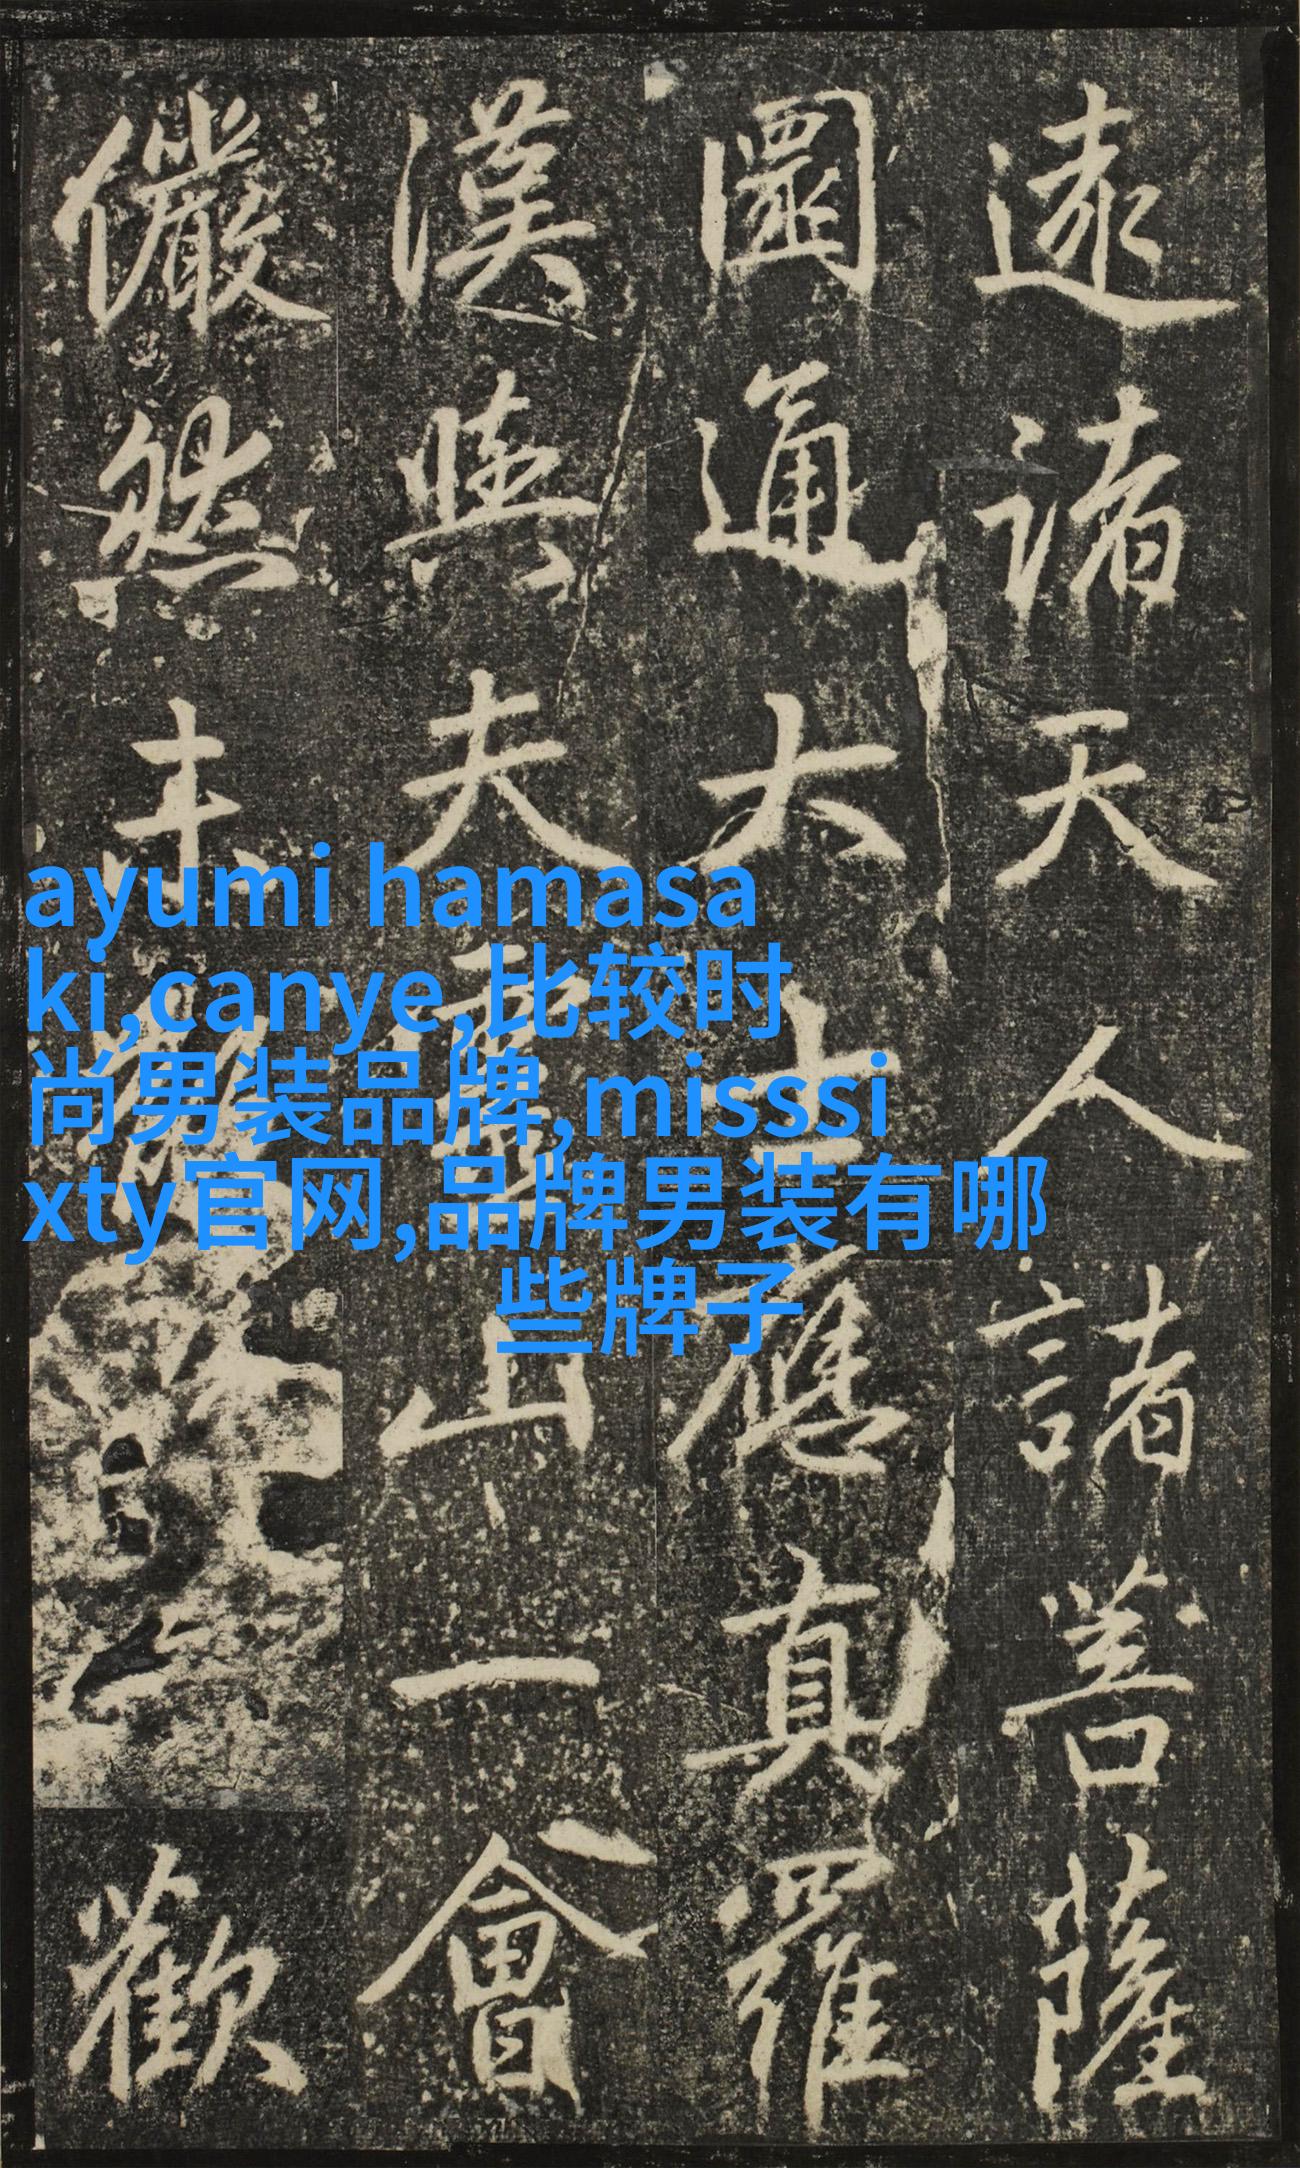 遠諸天人諸菩薩
圓通大士應真羅
漢與夫靈山一會
儼然未
歡
ayumi hamasa
ki,canye,比较时
尚男装品牌,misssi
xty官网,品牌男装有哪
些牌子